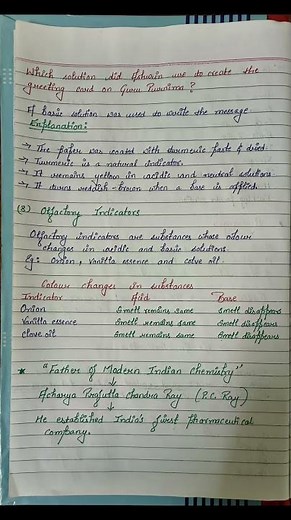 Which solution did Ashwin use to create the
greeting card on Guru Purnima ?
A basic solution was used to write the message
Explanation:
→ The paper was coated with turmeric paste & dried.
→ Turmeric is a natural indicator.
→ It remains yellow in acidic and neutral solutions
→ It turns reddish-brown when a base is applied.
(3) Olfactory Indicators
Olfactory indicators are substances whose odour
changes in acidic and basic solutions
Eg: Onion, Vanilla essence and clove oil.
Odour changes in substances
Indicator Acid Base
Onion Smell remains same Smell disappears
Vanilla essence Smell remains same Smell disappears
clove oil Smell remains same Smell disappears
★ "Father of Modern Indian Chemistry"
↓
Acharya Prafulla Chandra Ray (P.C. Ray)
↓
He established India's first pharmaceutical
company.